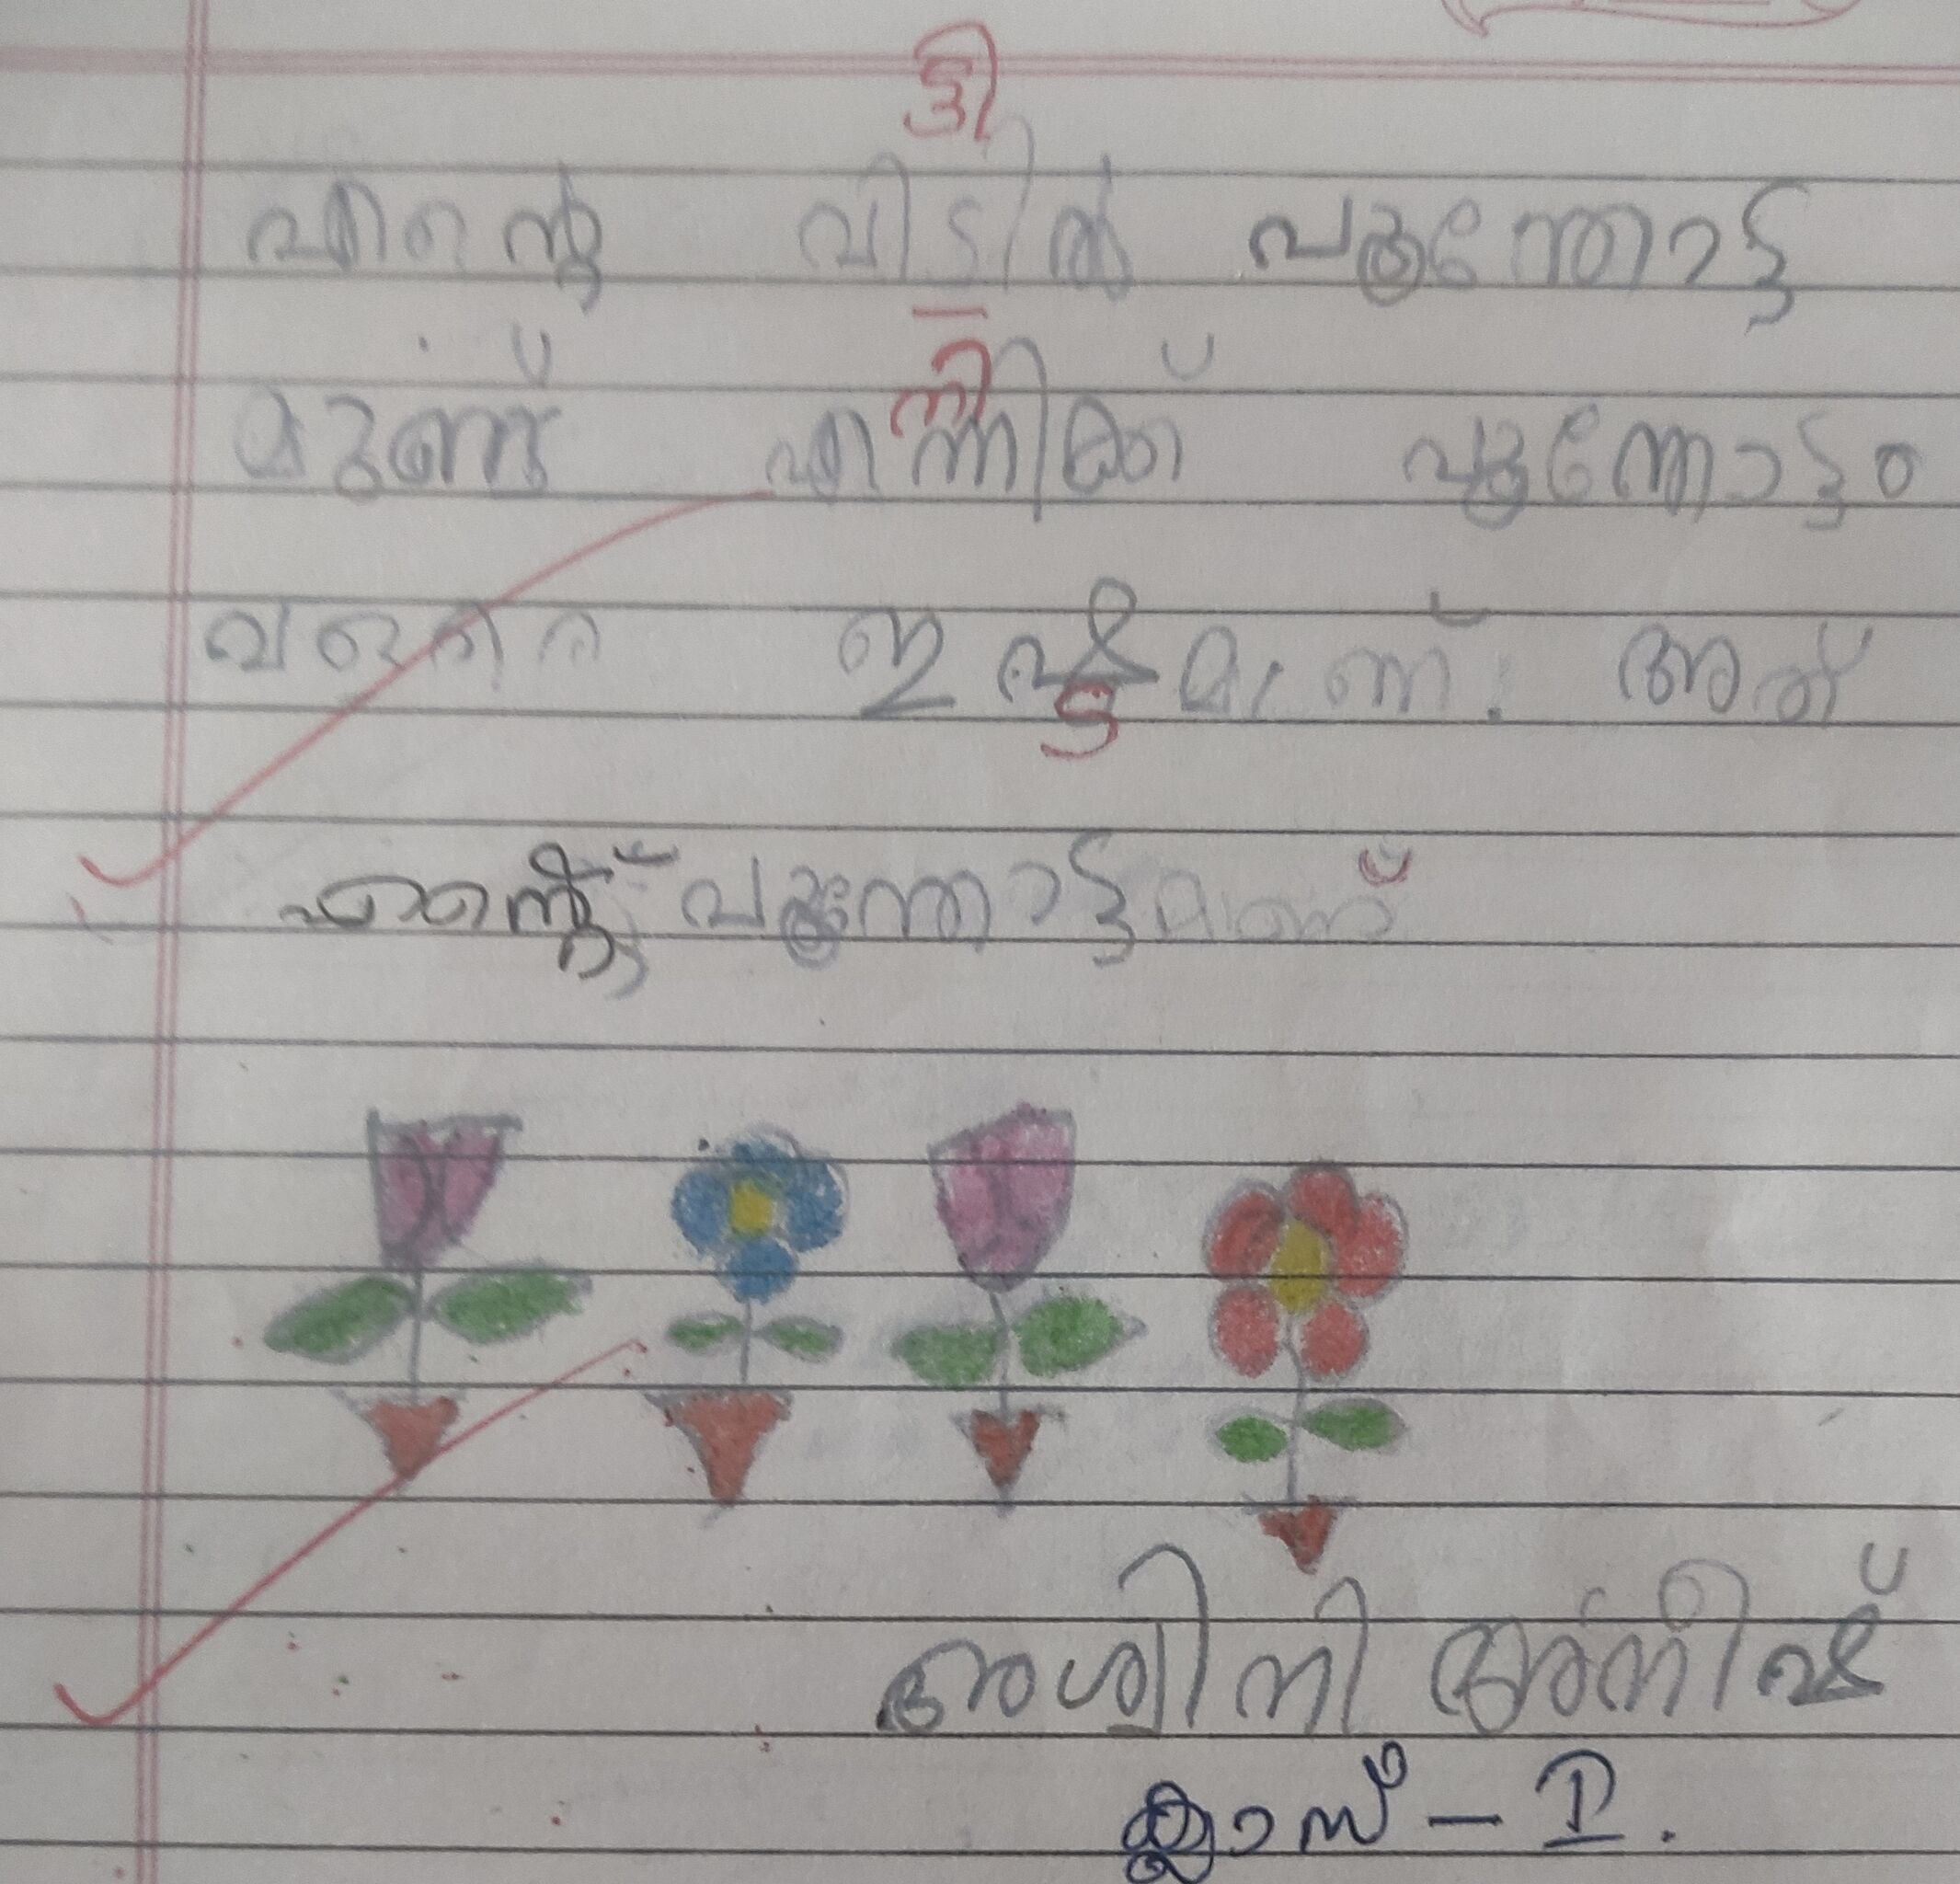 ട്ടി
എന്റെ വിടിൽ പൂന്തോട്ട
മുണ്ട് എന്നിക്ക് പൂന്തോട്ടം
നി
വളരെ ഇഷ്ടമാണ്. അത്
ട
എന്റെ പൂന്തോട്ടമാണ്
അശ്വിനി അനീഷ്
ക്ലാസ് - I.